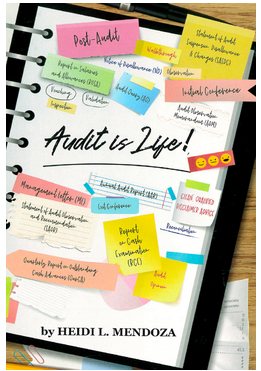 Post-Audit
Walkthrough
Statement of Audit
Suspension Disallowance
& Charges (SASDC)
Notice of Disallowance (ND)
Report in Salaries
and Allowances (ROSA)
Observation
Audit Query (AQ)
Initial Conference
Vouching
Validation
Inspection
Audit Observation
Memorandum (AOM)
Audit is Life!
Annual Audit Report (AAR)
Management Letter (ML)
Exit Conference
CLEAN QUALIFIED
DISCLAIMER ADVERSE
Statement of Audit Observation
and Recommendation
(SAOR)
Report
in Cash
Examination
(RCE)
Reconciliation
Quarterly Report in Outstanding
Cash Advances
Audit
Opinion
by HEIDI L. MENDOZA